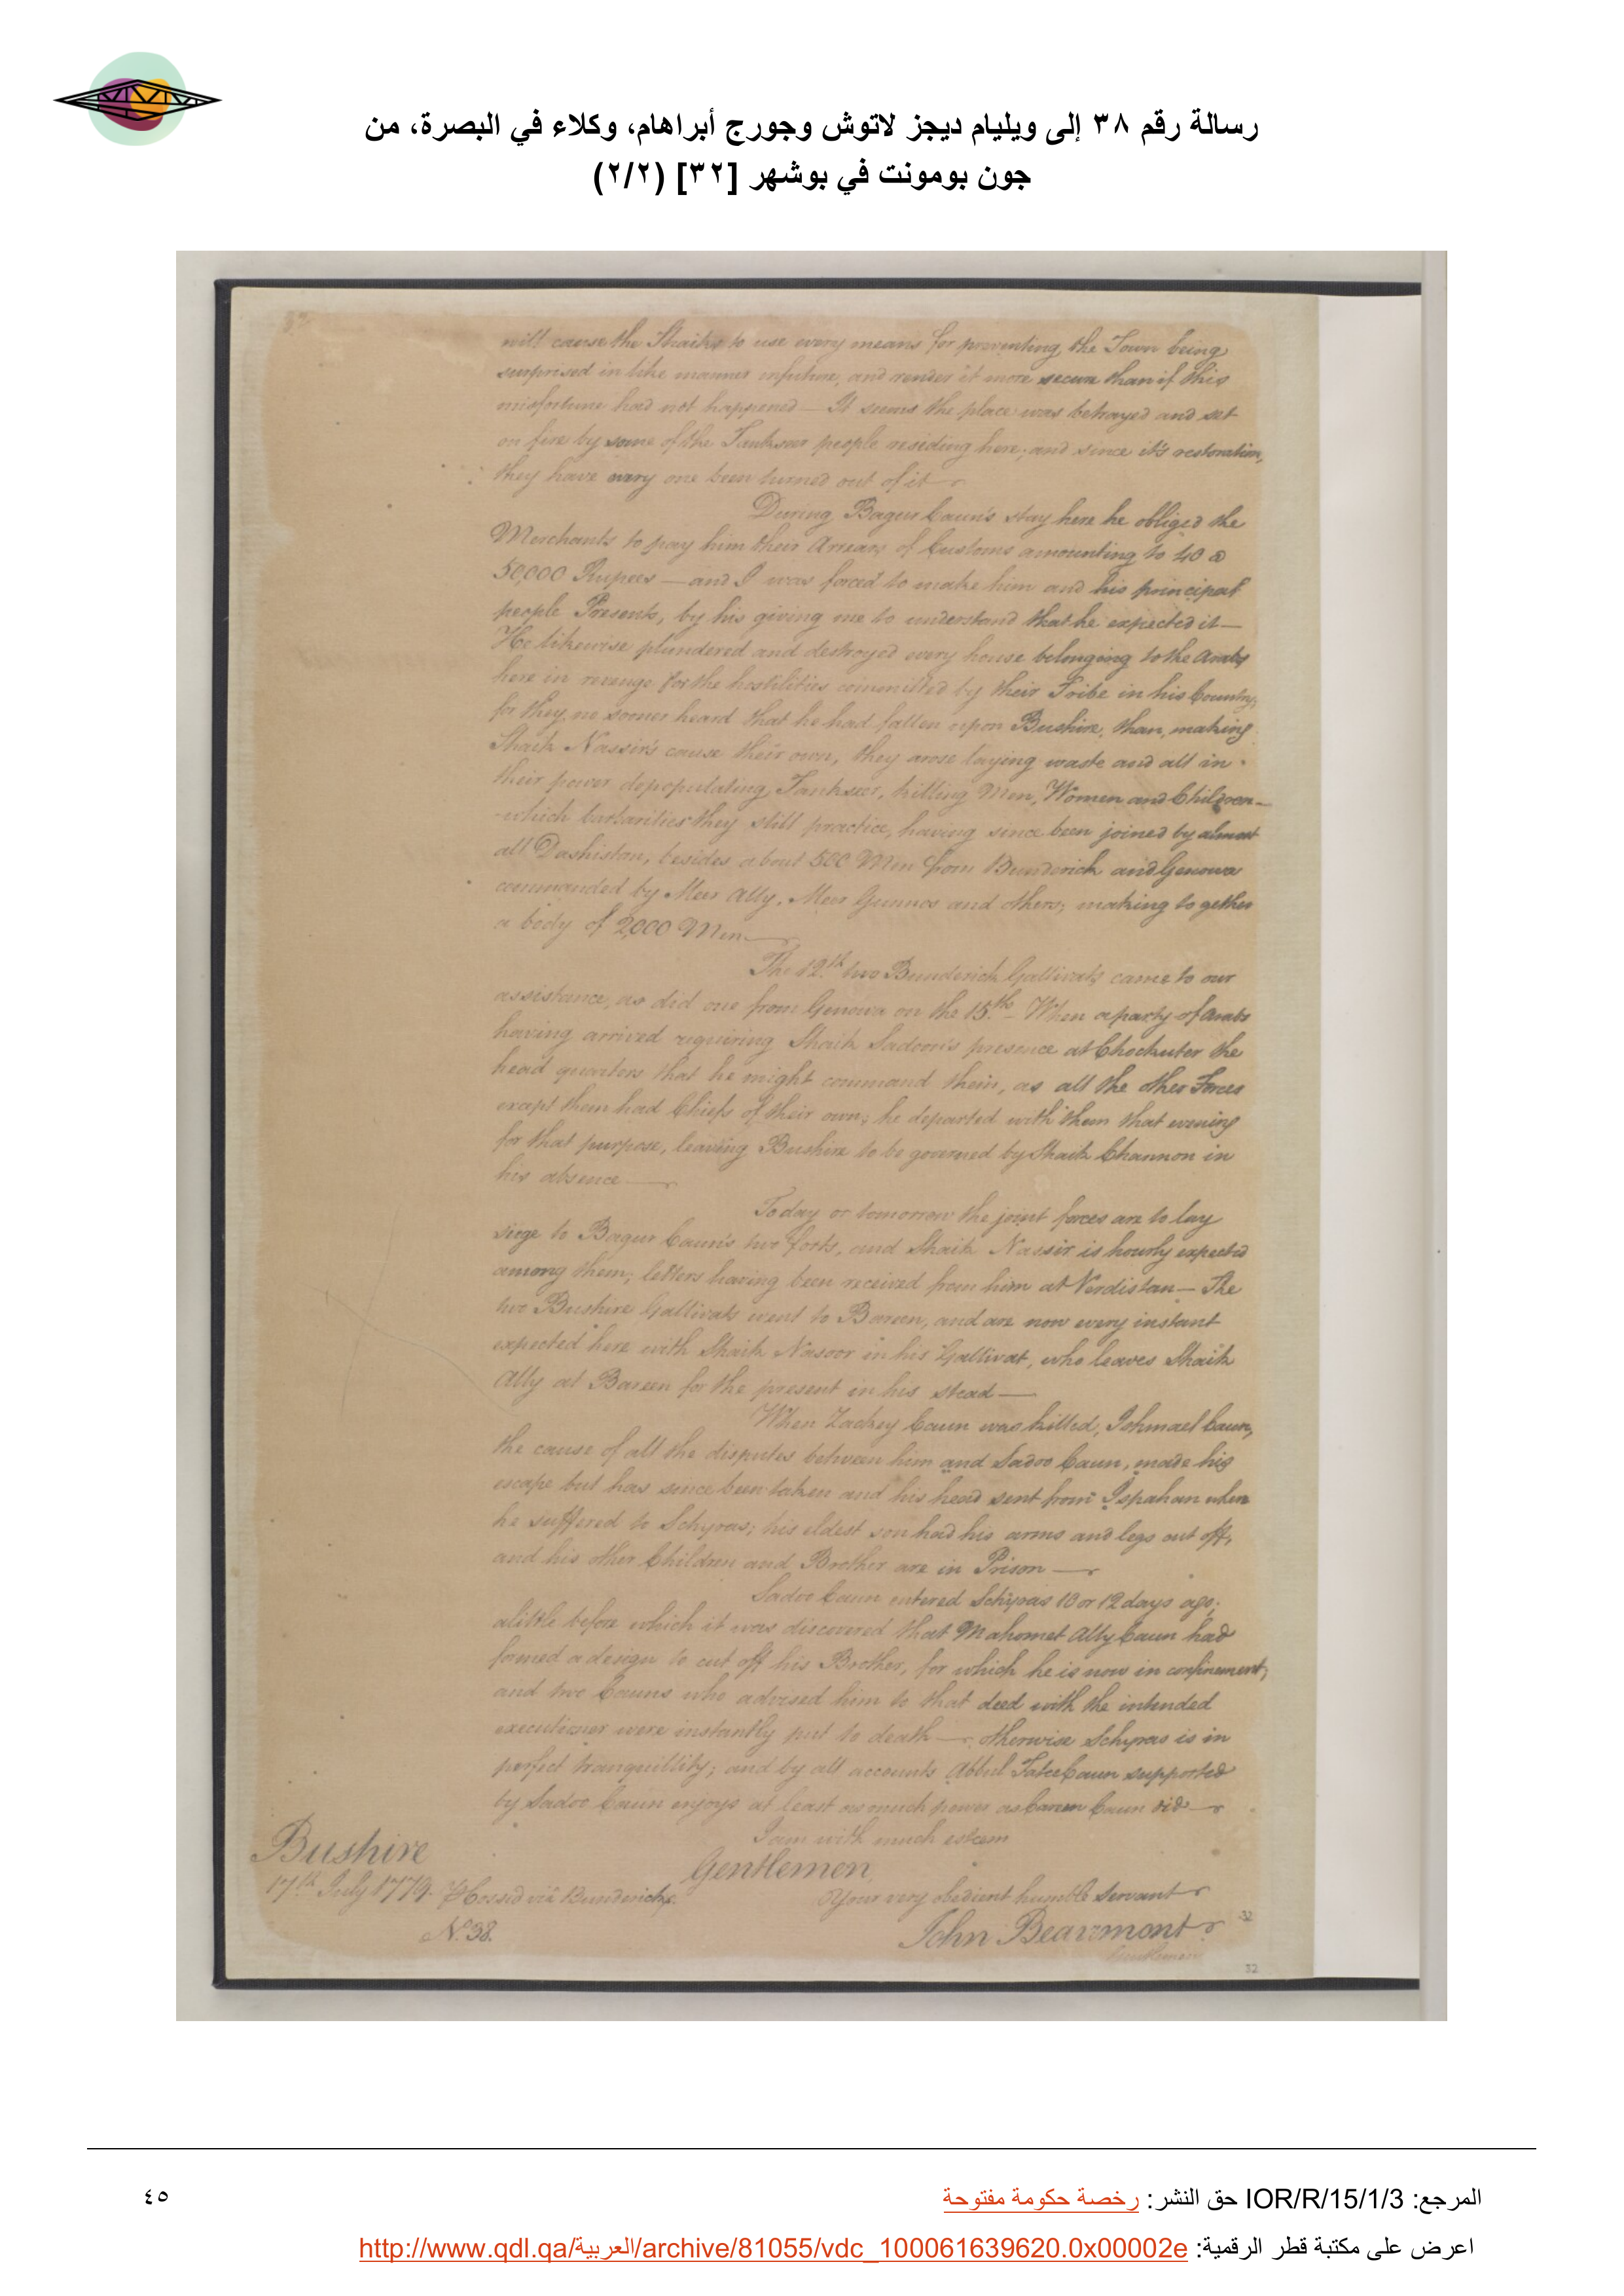 رسالة رقم ٣٨ إلى ويليام ديجز لاتوش وجورج أبراهام، وكلاء في البصرة، من
جون بومونت في بوشهر [٣٢] (٢/٢)
will cause the Shaiks to use every means for preventing the Town being
surprised in like manner in future, and render it more secure than if this
misfortune had not happened — It seems the place was betrayed and set
on fire by some of the Tankseer people residing here; and since it's restoration,
they have every one been turned out of it —
During Bagur Caun's stay here he obliged the
Merchants to pay him their Arrears of Customs amounting to 40 @
50,000 Rupees — and I was forced to make him and his principal
people Presents, by his giving me to understand that he expected it —
He likewise plundered and destroyed every house belonging to the Arabs
here in revenge for the hostilities committed by their Tribe in his Country;
for they no sooner heard that he had fallen upon Bushire, than, making
Shaik Nassir's cause their own, they arose laying waste and all in
their power depopulating Tankseer, killing Men, Women and Children —
which barbarities they still practice, having since been joined by almost
all Dashistan, besides about 500 Men from Bunderick and Genowa
commanded by Meer Ally, Meer Gunnos and others; making together
a body of 2,000 Men —
The 12.th two Bunderick Gallivats came to our
assistance, as did one from Genowa on the 15.th — When a party of Arabs
having arrived requiring Shaik Sadoon's presence at Chockuter the
head quarters that he might command them, as all the other Forces
except them had Chiefs of their own; he departed with them that evening
for that purpose, leaving Bushire to be governed by Shaik Channon in
his absence —
Today or tomorrow the joint forces are to lay
siege to Bagur Caun's two forts, and Shaik Nassir is hourly expected
among them; letters having been received from him at Verdistan — The
two Bushire Gallivats went to Bareen, and are now every instant
expected here with Shaik Nasoor in his Gallivat, who leaves Shaik
Ally at Bareen for the present in his stead —
When Zackey Caun was killed, Ishmael Caun,
the cause of all the disputes between him and Sadoo Caun, made his
escape but has since been taken and his head sent from Ispahan when
he suffered to Schyras; his eldest son had his arms and legs cut off,
and his other Children and Brother are in Prison —
Sadoo Caun entered Schyras 10 or 12 days ago;
a little before which it was discovered that Mahomet Ally Caun had
formed a design to cut off his Brother, for which he is now in confinement;
and two Cauns who advised him to that deed with the intended
executioner were instantly put to death — otherwise Schyras is in
perfect tranquillity; and by all accounts Abbul Fatee Caun supported
by Sadoo Caun enjoys at least as much power as Carem Caun did —
I am with much esteem
Gentlemen,
Your very obedient humble Servant
John Beaumont
Bushire
17.th July 1779. Hossid via Bunderick.
N.º 38.
32
Gentlemen
32
المرجع: IOR/R/15/1/3 حق النشر: رخصة حكومة مفتوحة
٤٥
اعرض على مكتبة قطر الرقمية: http://www.qdl.qa/العربية/archive/81055/vdc_100061639620.0x00002e